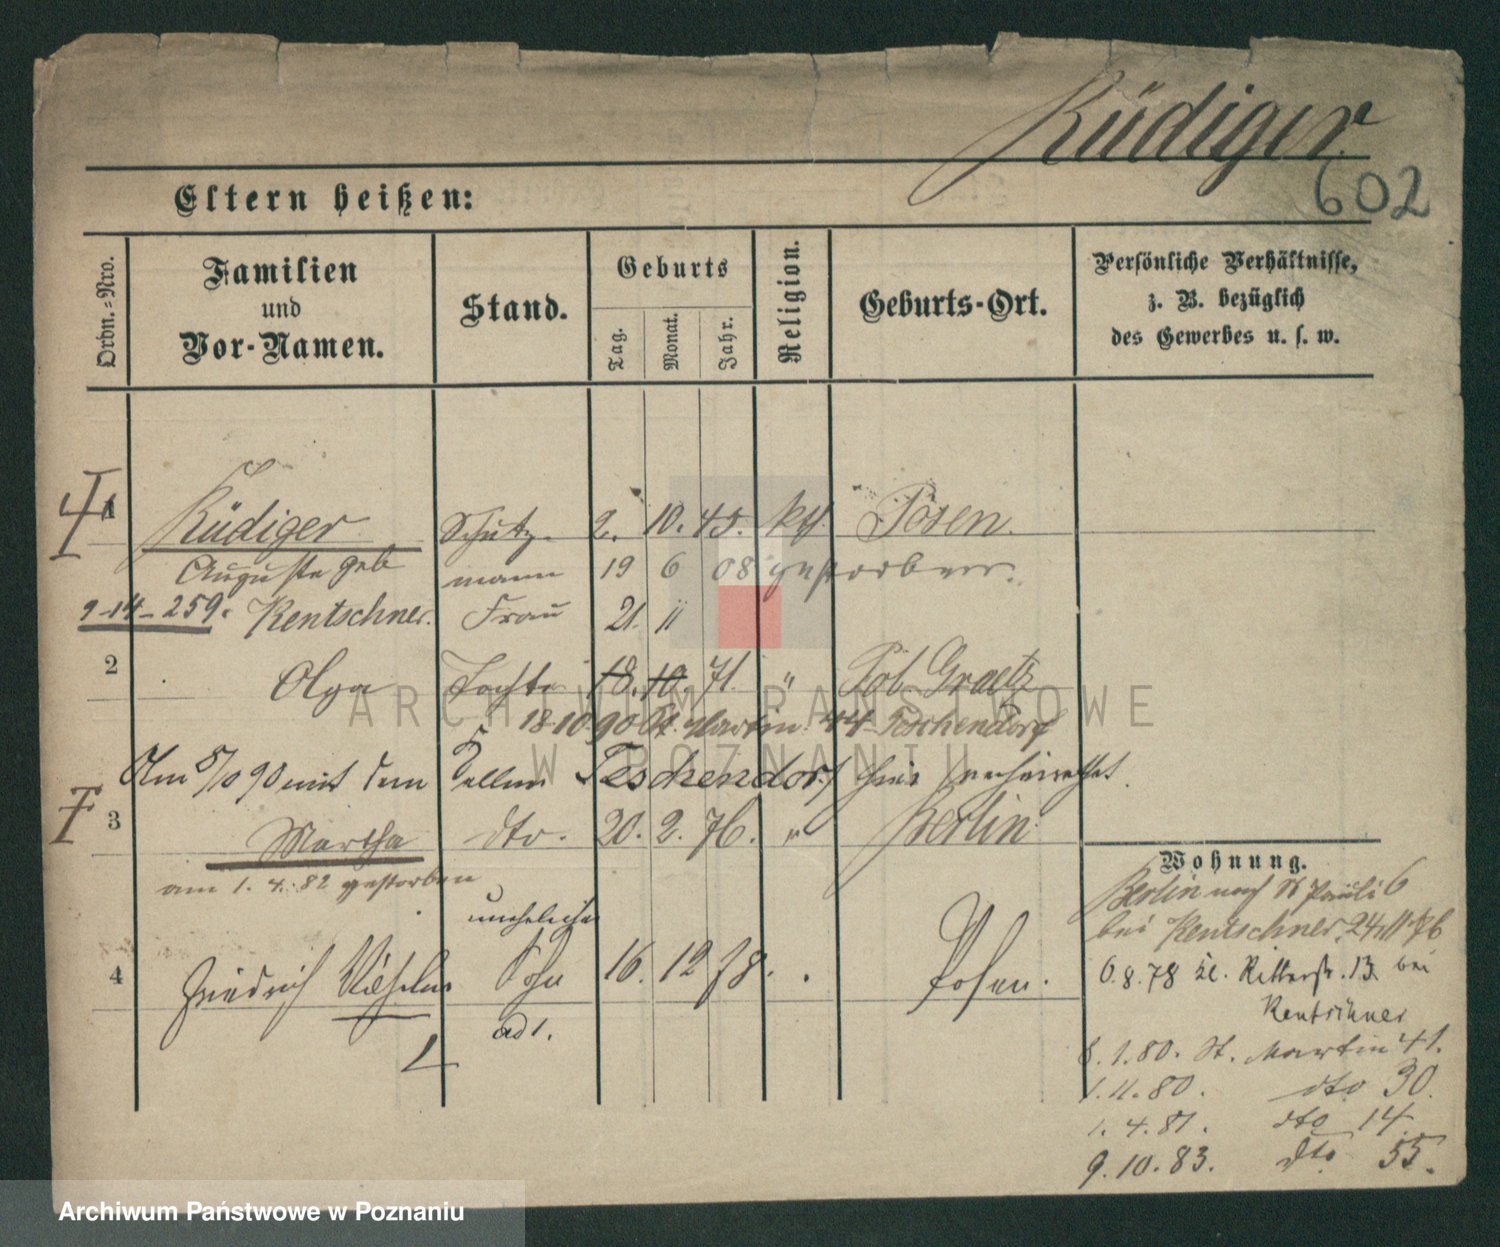 Rüdiger
602
Eltern heißen:
Ordn.-Nro.
Familien und Vor-Namen.
Stand.
Geburts
Tag.
Monat.
Jahr.
Religion.
Geburts-Ort.
Persönliche Verhältnisse,
z. B. bezüglich
des Gewerbes u. s. w.
1 Rüdiger Schutz- 2. 10. 45. kth. Posen.
Auguste geb mann 19 6 08 gestorben.
9-14-259. Rentschner. Frau 21. 11
2 Olga Tochter 18. 10. 71. " Graetz
18 10 90 St. Martin 44 Teschendorf
Am 90 mit dem Kellner Teschendorf hier verheirathet.
3 Martha dto. 20. 2. 76. " Berlin
am 1. 4. 82 gestorben
unehelicher
4 Friedrich Wilhelm Sohn 16. 12 78. Posen.
ad 1.
Wohnung.
Berlin nach St Pauli 6
bei Rentschner 24.11.76
6.8.78 kl. Ritterstr. 13. bei
Rentschner
8.1.80. St. Martin 41.
1.11.80. dto 30.
1.4.81. dto 14.
9.10.83. dto 55.
ARCHIWUM PAŃSTWOWE
W POZNANIU
Archiwum Państwowe w Poznaniu